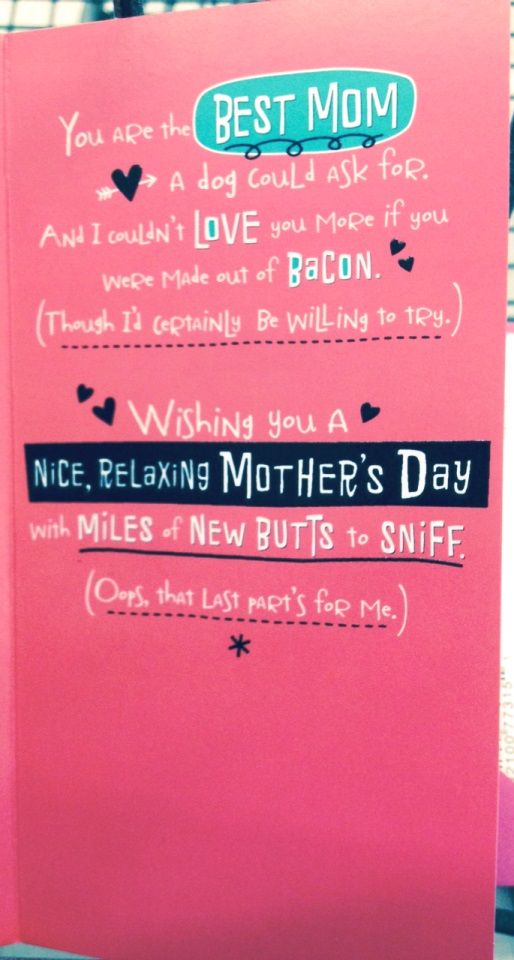 You are the BEST MOM
A dog could ask for.
And I couldn't LOVE you more if you
were made out of BaCON.
(Though I'd certainly be willing to try.)
Wishing you A
NiCE, RELaXiNg MOTHER'S Day
with MiLES of NEW BUTTS to SNiFF.
(Oops, that last part's for me.)
*
2100077315